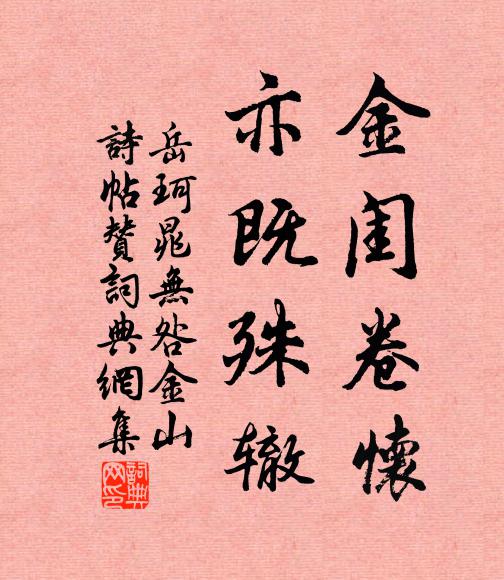 金闺卷懷
亦既殊辙
岳珂晁無咎金山
詩帖贊詞典網集